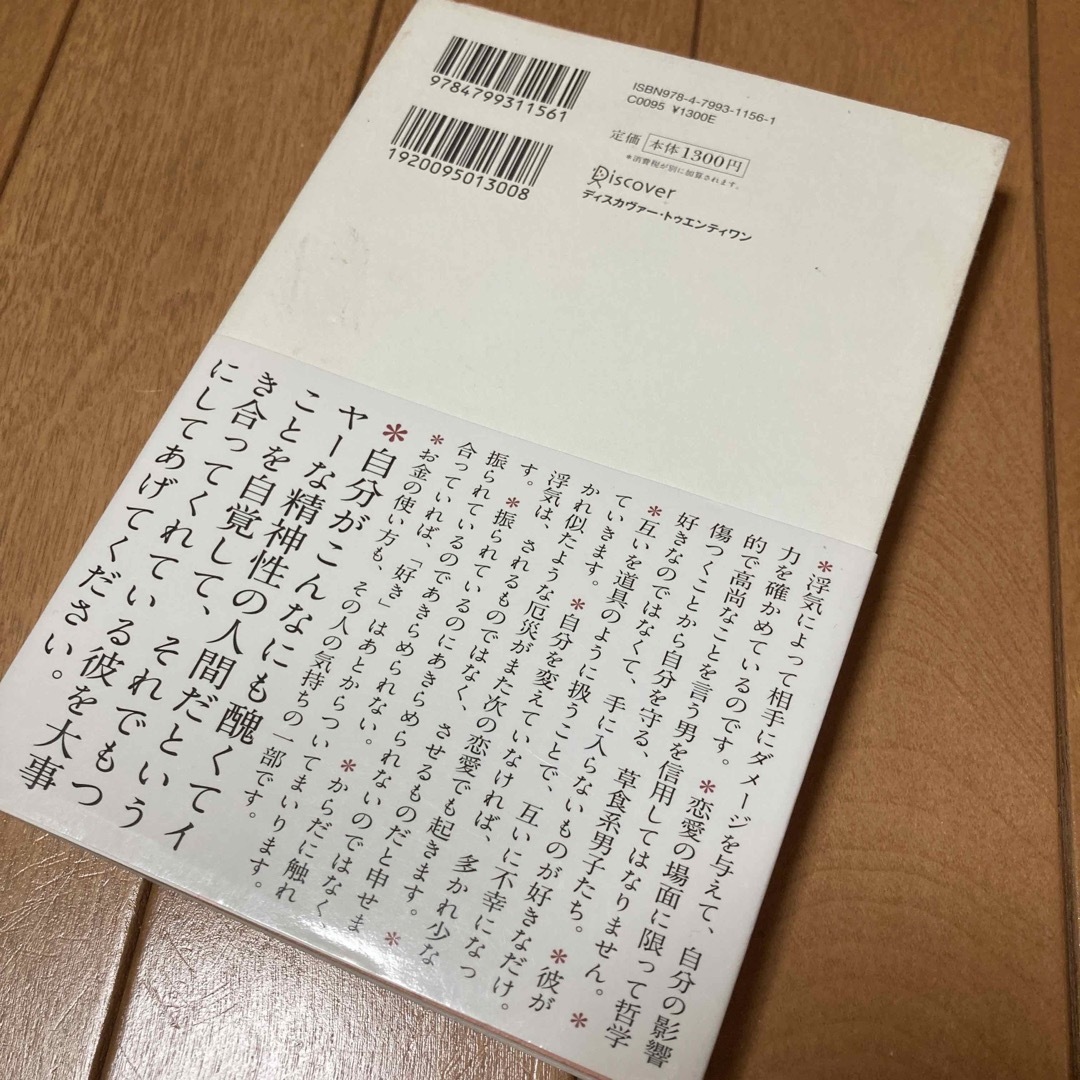 9784799311561
1920095013008
ISBN978-4-7993-1156-1
C0095 ¥1300E
定価 本体1300円
*消費税が別に加算されます。
Discover
ディスカヴァー・トゥエンティワン
*浮気によって相手にダメージを与えて、自分の影響
力を確かめているのです。 *恋愛の場面に限って哲学
的で高尚なことを言う男を信用してはなりません。 *
傷つくことから自分を守る、草食系男子たち。 *彼が
好きなのではなくて、手に入らないものが好きなだけ。
*互いを道具のように扱うことで、互いに不幸になっ
ていきます。 *自分を変えていなければ、多かれ少な
かれ似たような厄災がまた次の恋愛でも起きます。 *
浮気は、されるものではなく、させるものだと申せま
す。 *振られているのにあきらめられないのではなく、
振られているのであきらめられない。 *からだに触れ
合っていれば、「好き」はあとからついてまいります。
*お金の使い方も、その人の気持ちの一部です。
*自分がこんなにも醜くてイ
ヤーな精神性の人間だという
ことを自覚して、それでもつ
き合ってくれている彼を大事
にしてあげてください。